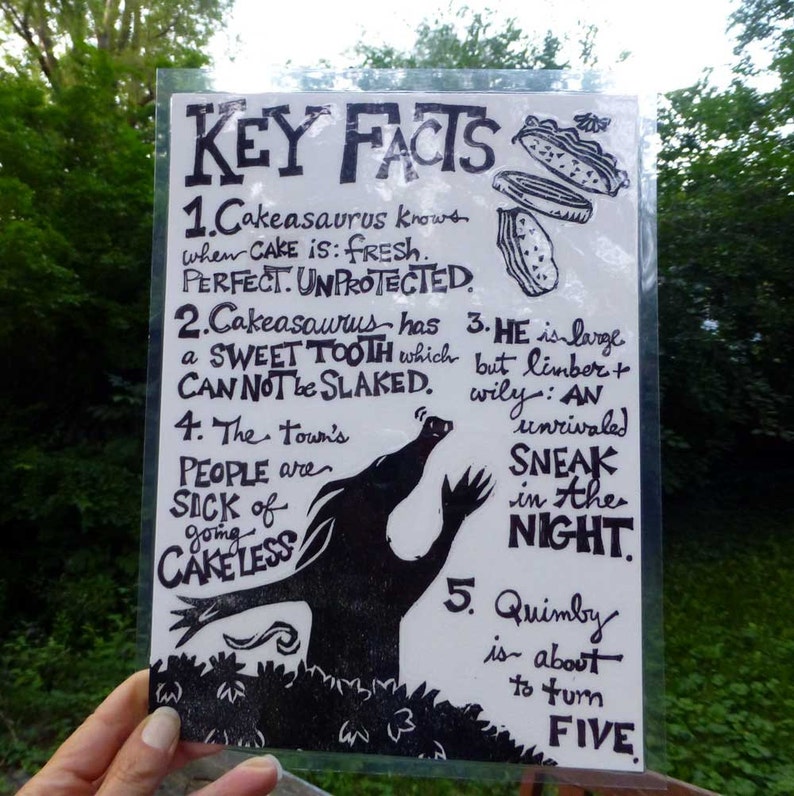 KEY FACTS
1. Cakeasaurus knows
when CAKE IS: FRESH.
PERFECT. UNPROTECTED.
2. Cakeasaurus has
a SWEET TOOTH which
CAN NOT be SLAKED.
3. HE is large
but limber +
wily: AN
unrivaled
SNEAK
in the
NIGHT.
4. The Town's
PEOPLE are
SICK of
going
CAKELESS
5. Quimby
is about
to turn
FIVE.